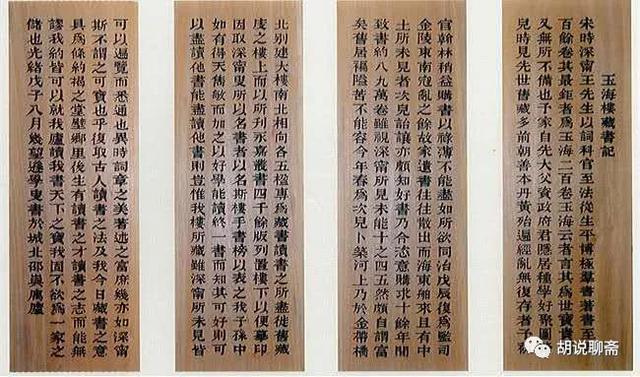 玉海樓藏書記
宋時深甯王先生以詞科官至法從生平博極羣書著書至
百餘卷其最鉅者爲玉海二百卷玉海云者言其爲世寶貴
又無所不備也予家自先大父資政府君隱居種學好聚圖
兒時見先世舊藏多前朝善本丹黃殆遍經亂無復存者予
官翰林稍益購書以祿薄不能盡如所欲同治戊辰復爲監司
金陵東南寇亂之餘故家遺書往往散出而海東舶來且有中
土所未見者次兒詒讓亦頗知好書乃令恣意購求十餘年間
致書約八九萬卷雖視深甯所見未能十之四五然頗自謂富
矣舊居褊隘苦不能容今年春爲次兒卜築河上乃於金帶橋
北別建大樓南北相向各五楹專爲藏書讀書之所盡徙舊藏
庋之樓上而以所刊永嘉叢書四千餘版列置樓下以便摹印
因取深甯叟所以名書者以名斯樓手書榜以表之我子孫中
如有得天雋敏而加之以好學能讀終一書而知其可好則可
以盡讀他書能盡讀他書則豈惟我樓所藏雖深甯所未見皆
可以遍覽而悉通也異時詞章之美著述之富庶幾亦如深甯
斯不謂之可寶也乎復取古人讀書之法及我今日藏書之意
具爲條約揭之堂壁鄉里後生有讀書之才讀書之志而能無
謬我約皆可以就我廬讀我書天下之寶我固不欲爲一家之
儲也光緒戊子八月幾望遜學叟書於城北邵嶼寓廬
胡说聊斋